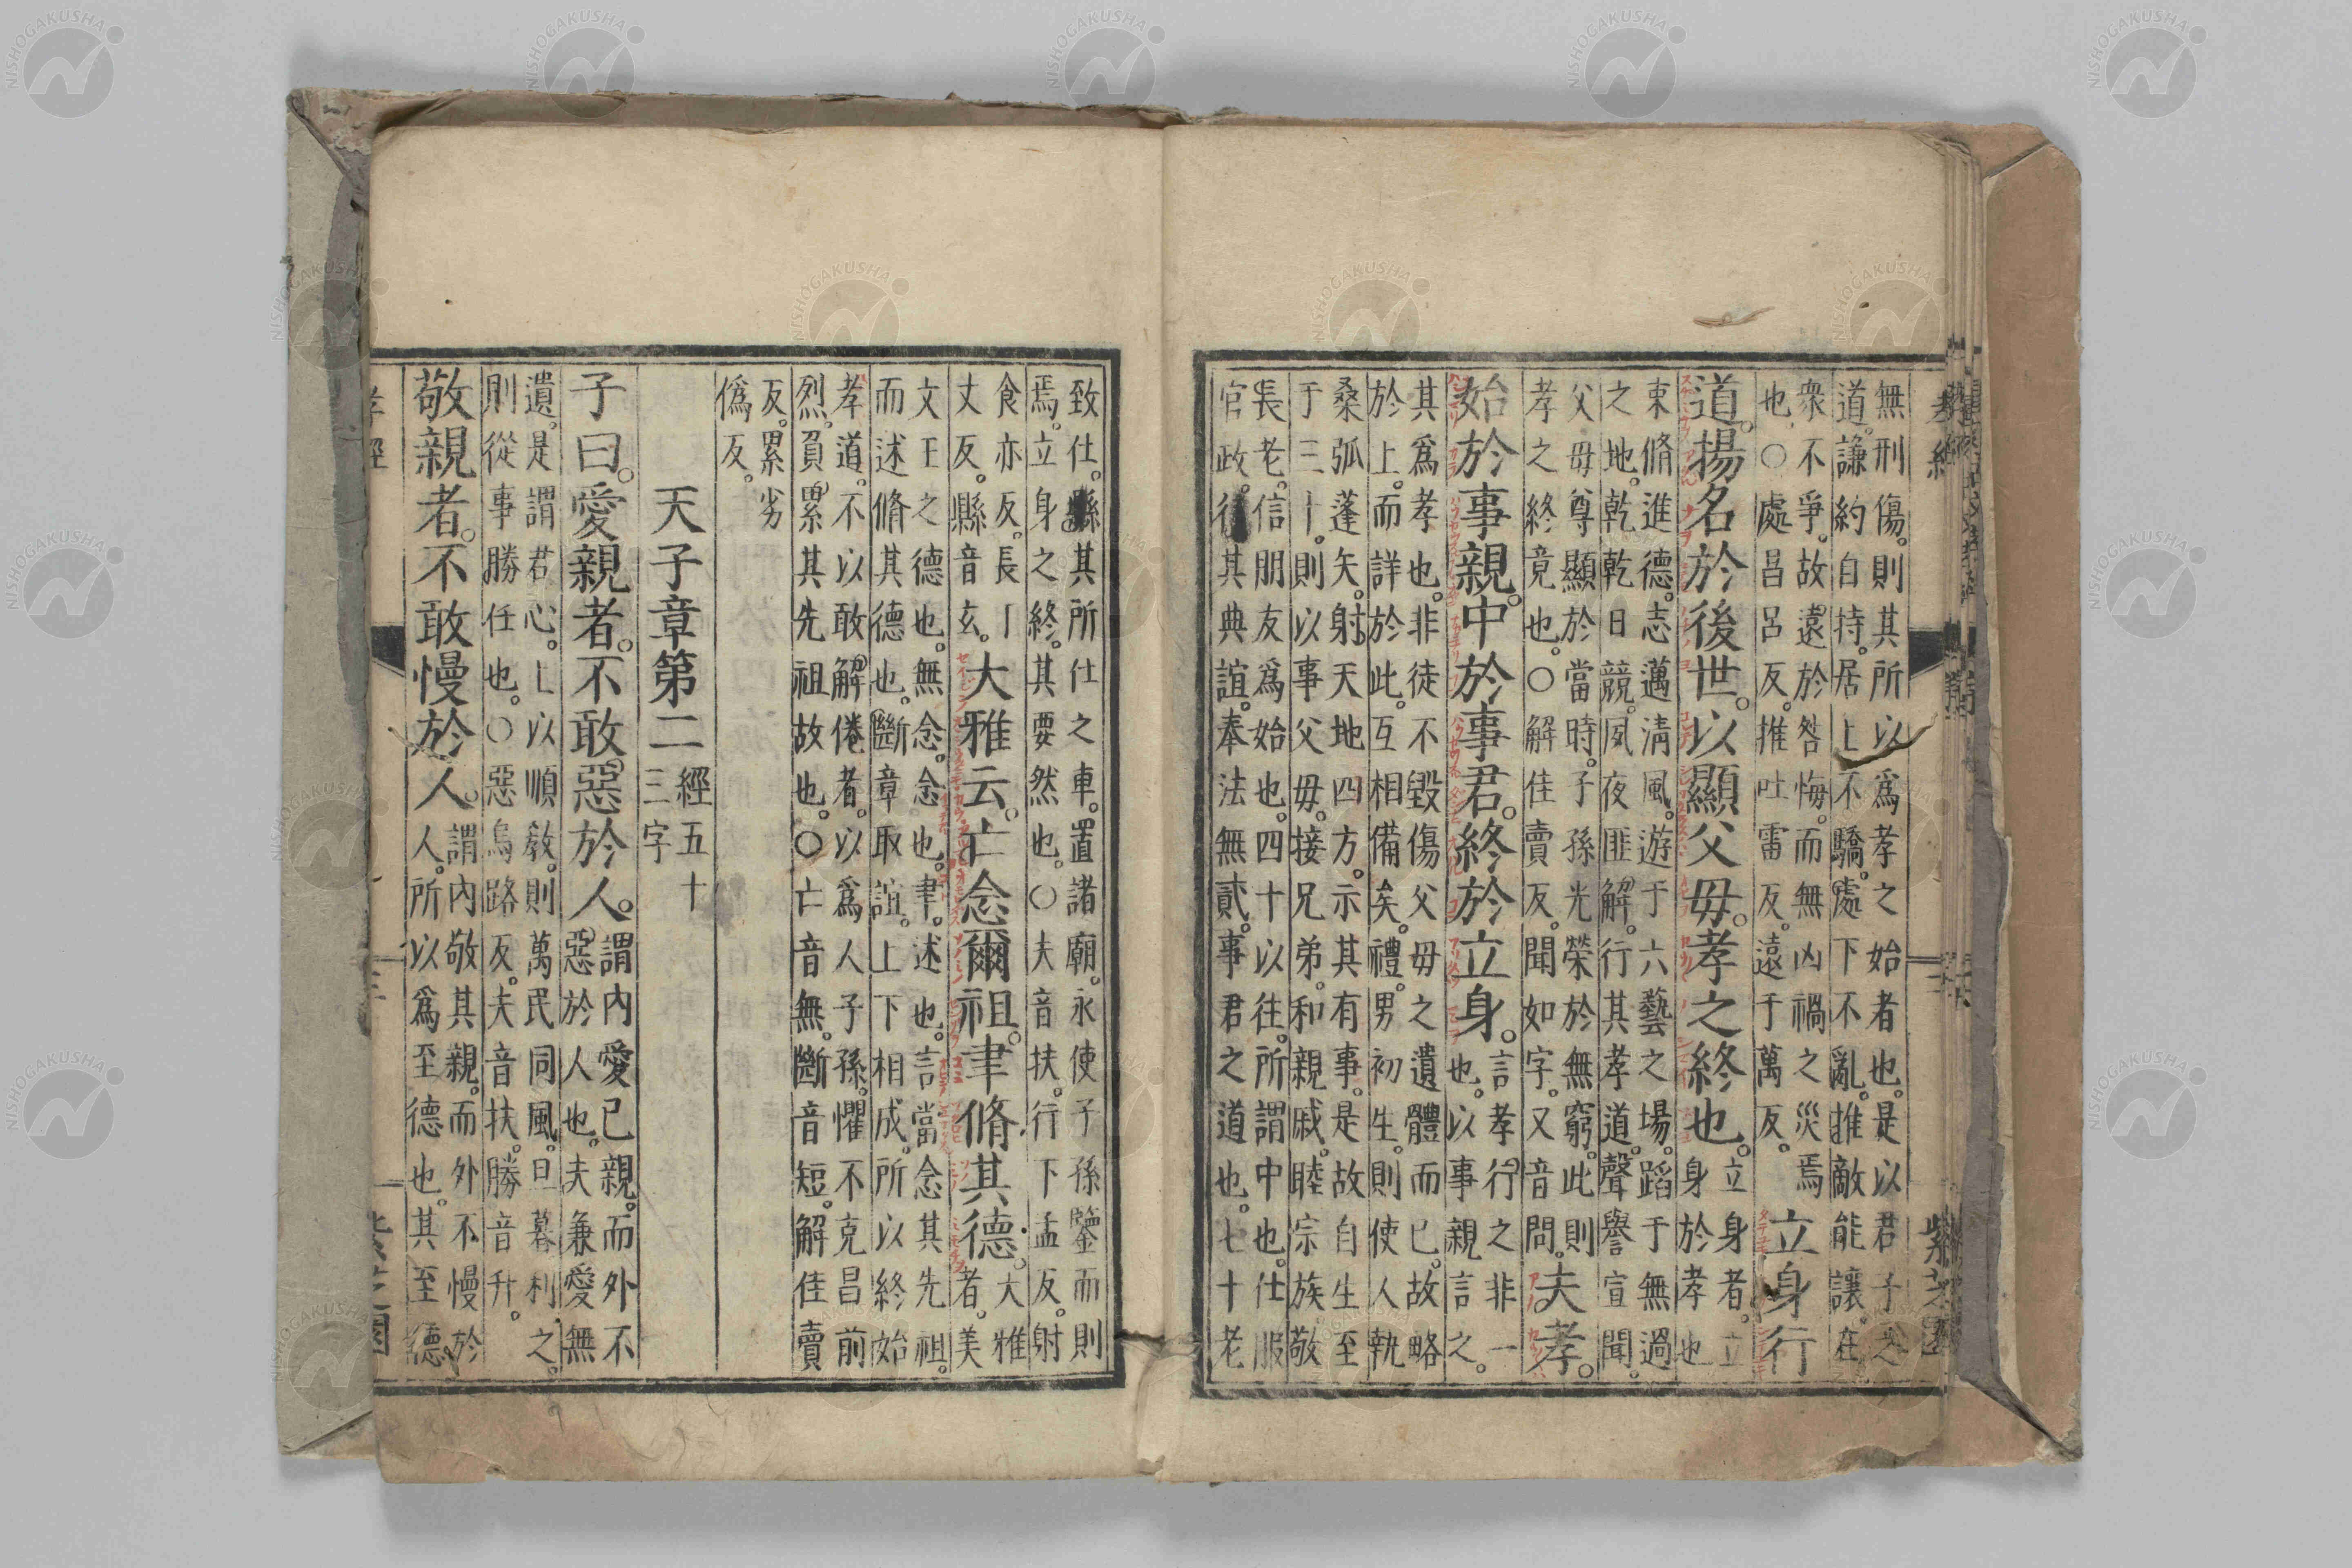 無刑傷。則其所以爲孝之始者也。是以君子之
道。謙約自持。居上不驕。處下不亂。推敵能讓。在
衆不爭。故遠於咎悔。而無凶禍之災焉
也。○處昌呂反。推吐雷反。遠于萬反。
立身行
道。揚名於後世。以顯父毋。孝之終也。
立身者。立
身於孝也
束脩進德。志邁淸風。遊于六藝之場。蹈于無過
之地。乾乾日競。夙夜匪解。行其孝道。聲譽宣聞。
父毋尊顯於當時。子孫光榮於無窮。此則
孝之終竟也。○解佳賣反。聞如字。又音問。
夫孝。
始於事親。中於事君。終於立身。
言孝行之非一
也。以事親言之。
其爲孝也。非徒不毀傷父毋之遺體而已。故略
於上。而詳於此。互相備矣。禮。男初生。則使人執
桑弧蓬矢。射天地四方。示其有事。是故自生至
于三十。則以事父毋。接兄弟。和親戚。睦宗族。敬
長老。信朋友爲始也。四十以往。所謂中也。仕服
官政。行其典誼。奉法無貳。事君之道也。七十老
致仕。縣其所仕之車。置諸廟。永使子孫鑒而則
焉。立身之終。其要然也。○夫音扶。行下孟反。射
食亦反。長丁
丈反。縣音玄。
大雅云。亡念爾祖。聿脩其德。
大雅
者。美
文王之德也。無念。念也。聿。述也。言當念其先祖。
而述脩其德也。斷章取誼。上下相成。所以終始
孝道。不以敢解倦者。以爲人子孫。懼不克昌前
烈。負累其先祖故也。○亡音無。斷音短。解佳賣
反。累劣
僞反。
天子章第二
經五十
三字
子曰。愛親者。不敢惡於人。
謂內愛已親。而外不
惡於人也。夫兼愛無
遺。是謂君心。上以順敎。則萬民同風。旦暮利之。
則從事勝任也。○惡烏路反。夫音扶。勝音升。
敬親者。不敢慢於人。
謂內敬其親。而外不慢於
人。所以爲至德也。其至德。
孝經
NISHOGAKUSHA